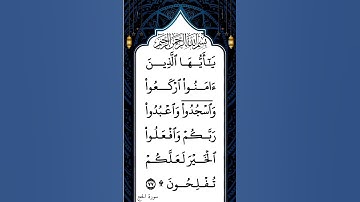 بسم الله الرحمن الرحيم
يَٰٓأَيُّهَا ٱلَّذِينَ
ءَامَنُوا۟ ٱرْكَعُوا۟
وَٱسْجُدُوا۟ وَٱعْبُدُوا۟
رَبَّكُمْ وَٱفْعَلُوا۟
ٱلْخَيْرَ لَعَلَّكُمْ
تُفْلِحُونَ ۩ ٧٧
سورة الحج